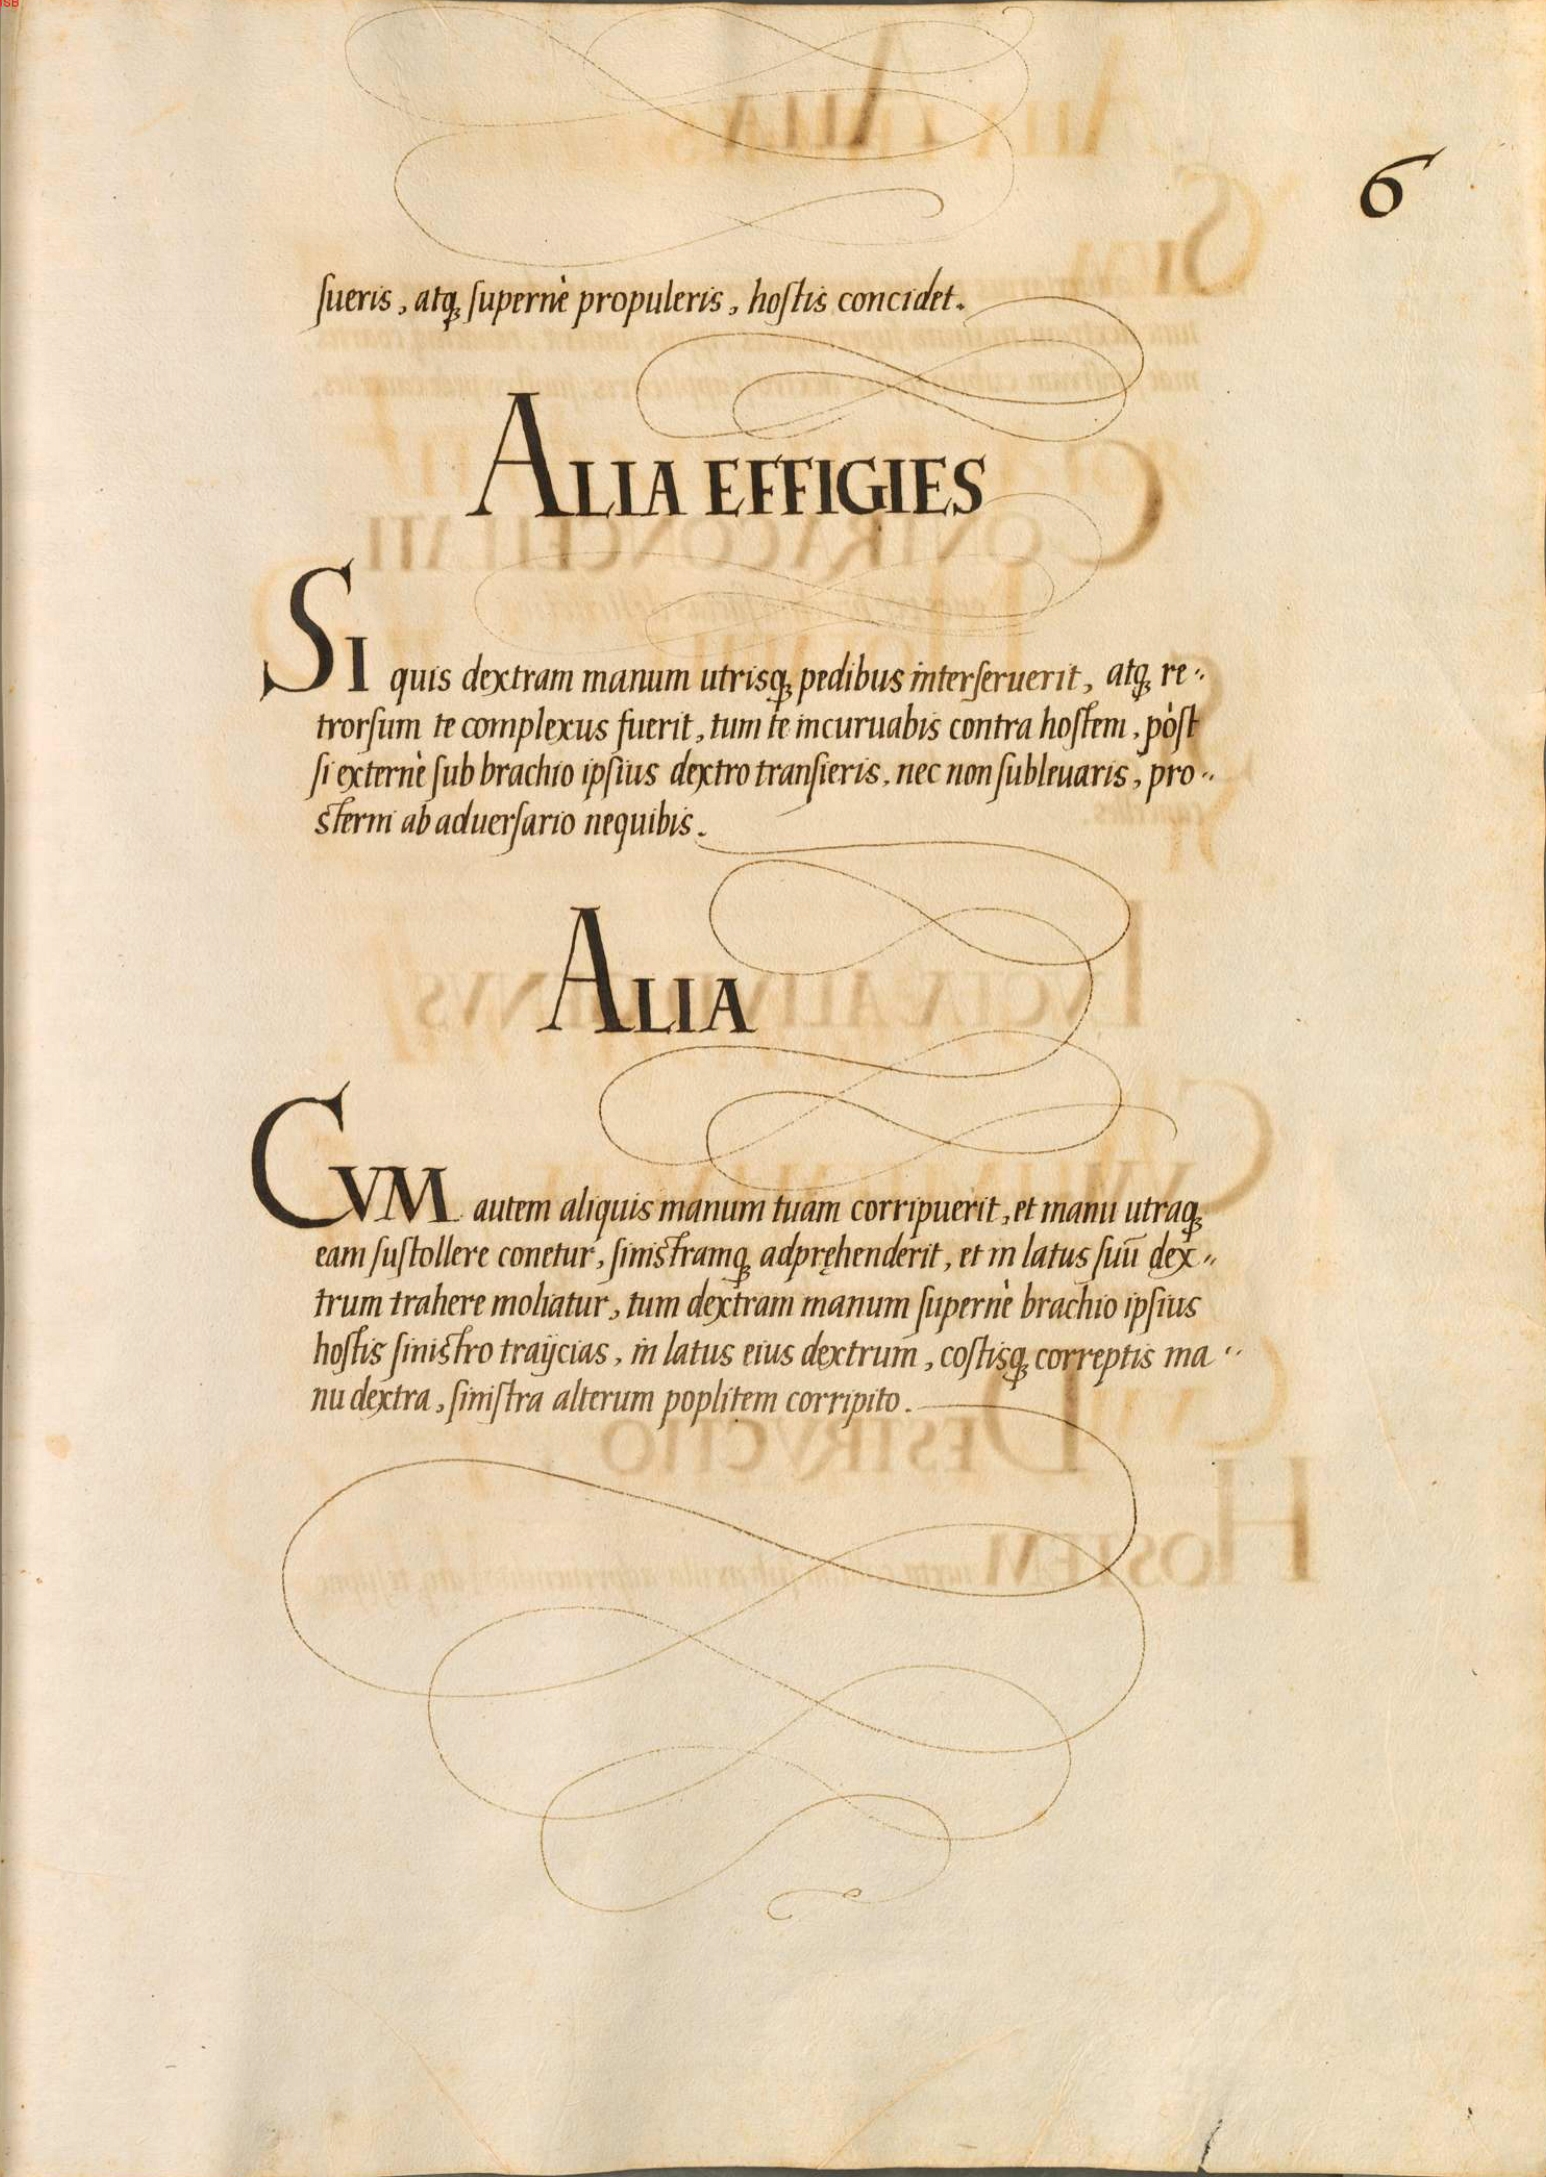 6
sueris, atq; supernè propuleris, hostis concidet.
ALIA EFFIGIES
SI quis dextram manum utrisq; pedibus interseruerit, atq; re-
trorsum te complexus fuerit, tum te incuruabis contra hostem, pòst
si externè sub brachio ipsius dextro transieris, nec non subleuaris, pro-
sterni ab aduersario nequibis.
ALIA
CVM autem aliquis manum tuam corripuerit, et manu utraq;
eam sustollere conetur, sinistramq; adpręhenderit, et in latus suū dex-
trum trahere moliatur, tum dextram manum supernè brachio ipsius
hostis sinistro traijcias, in latus eius dextrum, costisq; correptis ma-
nu dextra, sinistra alterum poplitem corripito.